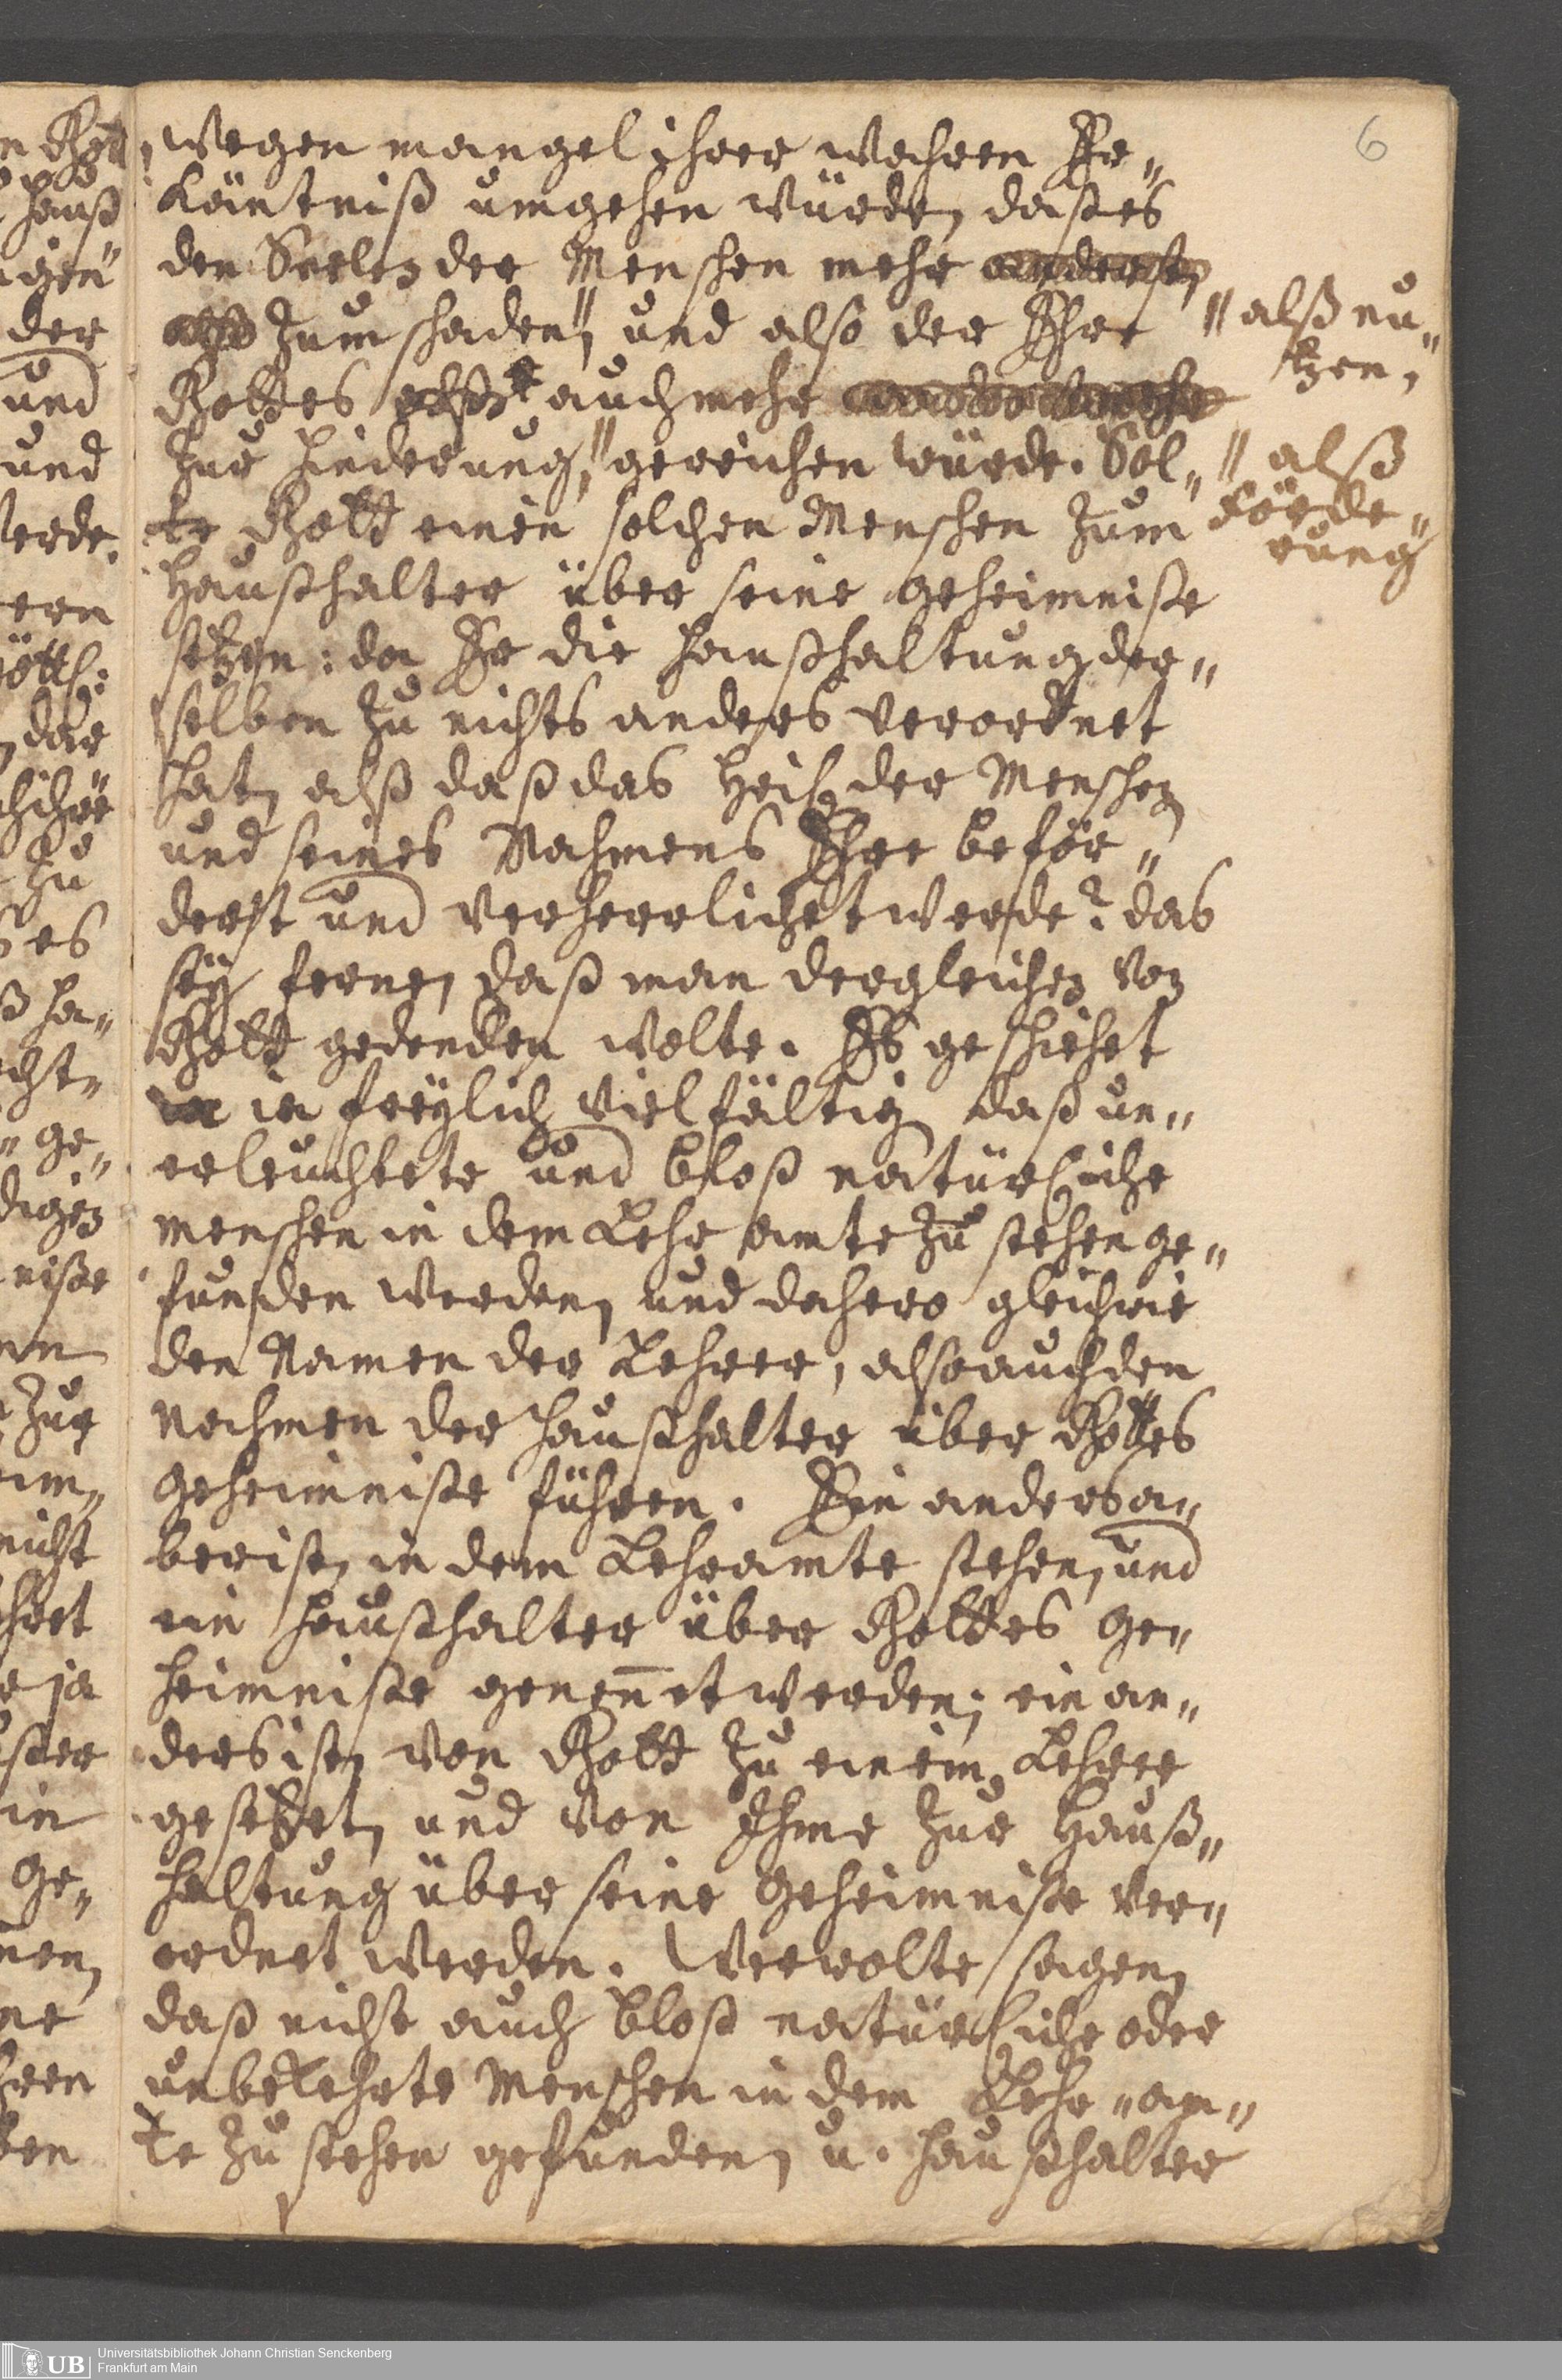 6
wegen mangel ihrer wahren Er„
käntniß umgehen würde, daß es
den Seelen der Menschen mehr
zum schaden,〃 und also der Ehre
〃 alß nu„
tzen,
Gottes auch mehr
zur hinderung,〃 gereichen würde. Sol„
〃 alß
förde„
rung
te Gott einen solchen Menschen zum
Haußhalter über seine geheimniße
setzen: da Er die haußhaltung der„
selben zu nichts anders verordnet
hat, alß daß das Heil der Menschen
und seines Nahmens Ehre beför„
dert und verherrlichet werde? das
seÿ ferne, daß man dergleichen von
Gott gedencken wolte. Es geschiehet
ia freÿlich vielfältig daß un„
erleuchtete und bloß natürliche
menschen in dem Lehr amte zu stehen ge„
funden werden, und dahero gleichwie
den Namen der Lehrer, also auch den
Nahmen der haußhalter über Gottes
geheimniße führen. Ein anders a„
ber ist, in dem Lehramte stehen, und
ein haußhalter über Gottes Ge„
heimniße genen̄et werden; ein an„
ders ist, von Gott zu einem Lehrer
gesetzet, und von Ihme zur Hauß„
haltung über seine Geheimniße ver„
ordnet werden. Wer wolte sagen,
daß nicht auch bloß natürliche oder
unbekehrte Menschen in dem Lehr„am„
te zu stehen gefunden, u. haußhalter
UB Universitätsbibliothek Johann Christian Senckenberg
Frankfurt am Main